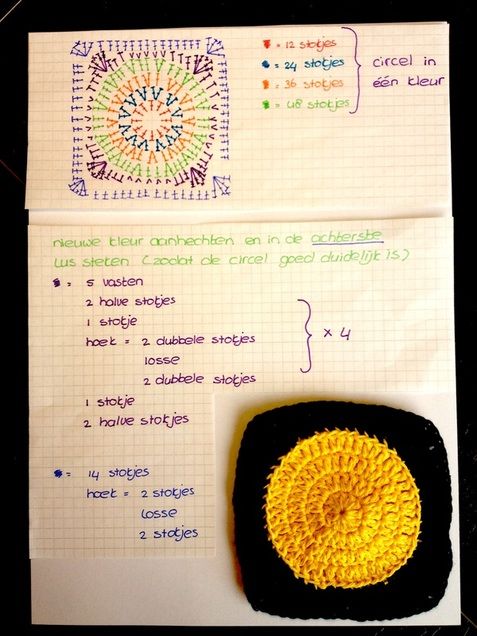 = 12 stokjes
= 24 stokjes
= 36 stokjes
= 48 stokjes
circel in
één kleur
nieuwe kleur aanhechten en in de achterste
lus steken (zodat de circel goed duidelijk is)
= 5 vasten
2 halve stokjes
1 stokje
hoek = 2 dubbele stokjes
losse
2 dubbele stokjes
x 4
1 stokje
2 halve stokjes
= 14 stokjes
hoek = 2 stokjes
losse
2 stokjes